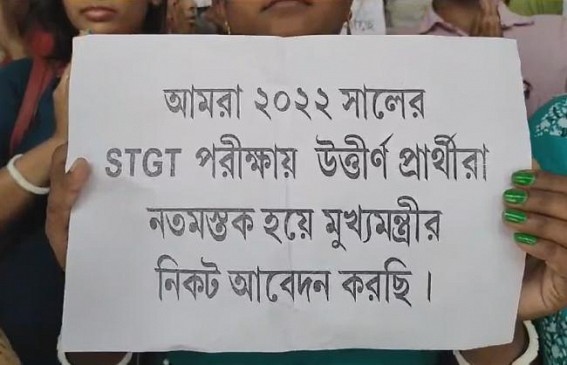 আমরা ২০২২ সালের
STGT পরীক্ষায় উত্তীর্ণ প্রার্থীরা
নতমস্তক হয়ে মুখ্যমন্ত্রীর
নিকট আবেদন করছি ।